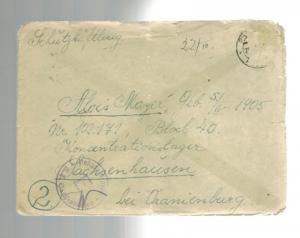 22/10
Alois Mayer, Geb. 5/6. 1905
Nr. 102.171, Block 40.
Konzentrationslager
Sachsenhausen
bei Oranienburg
2